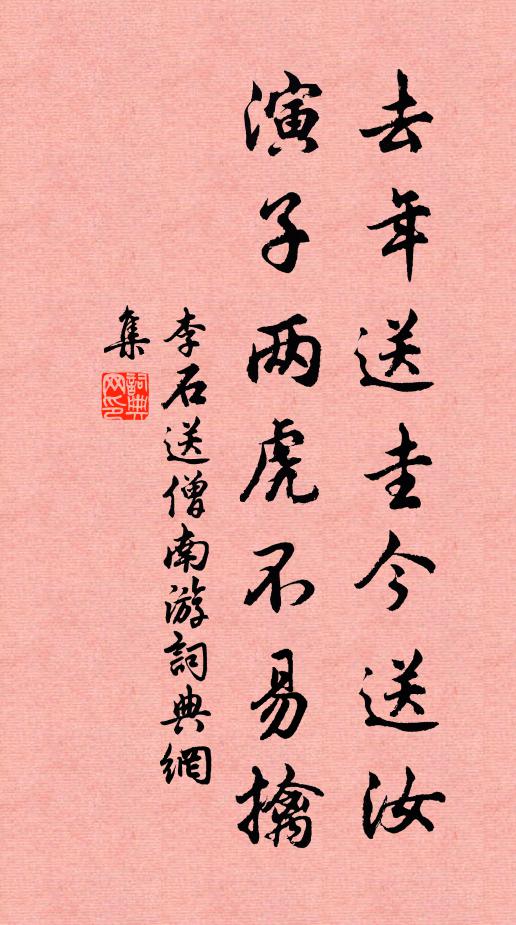 去年送圭今送汝
演子两虎不易擒
李石送僧南游詞典網
集
詞典網印